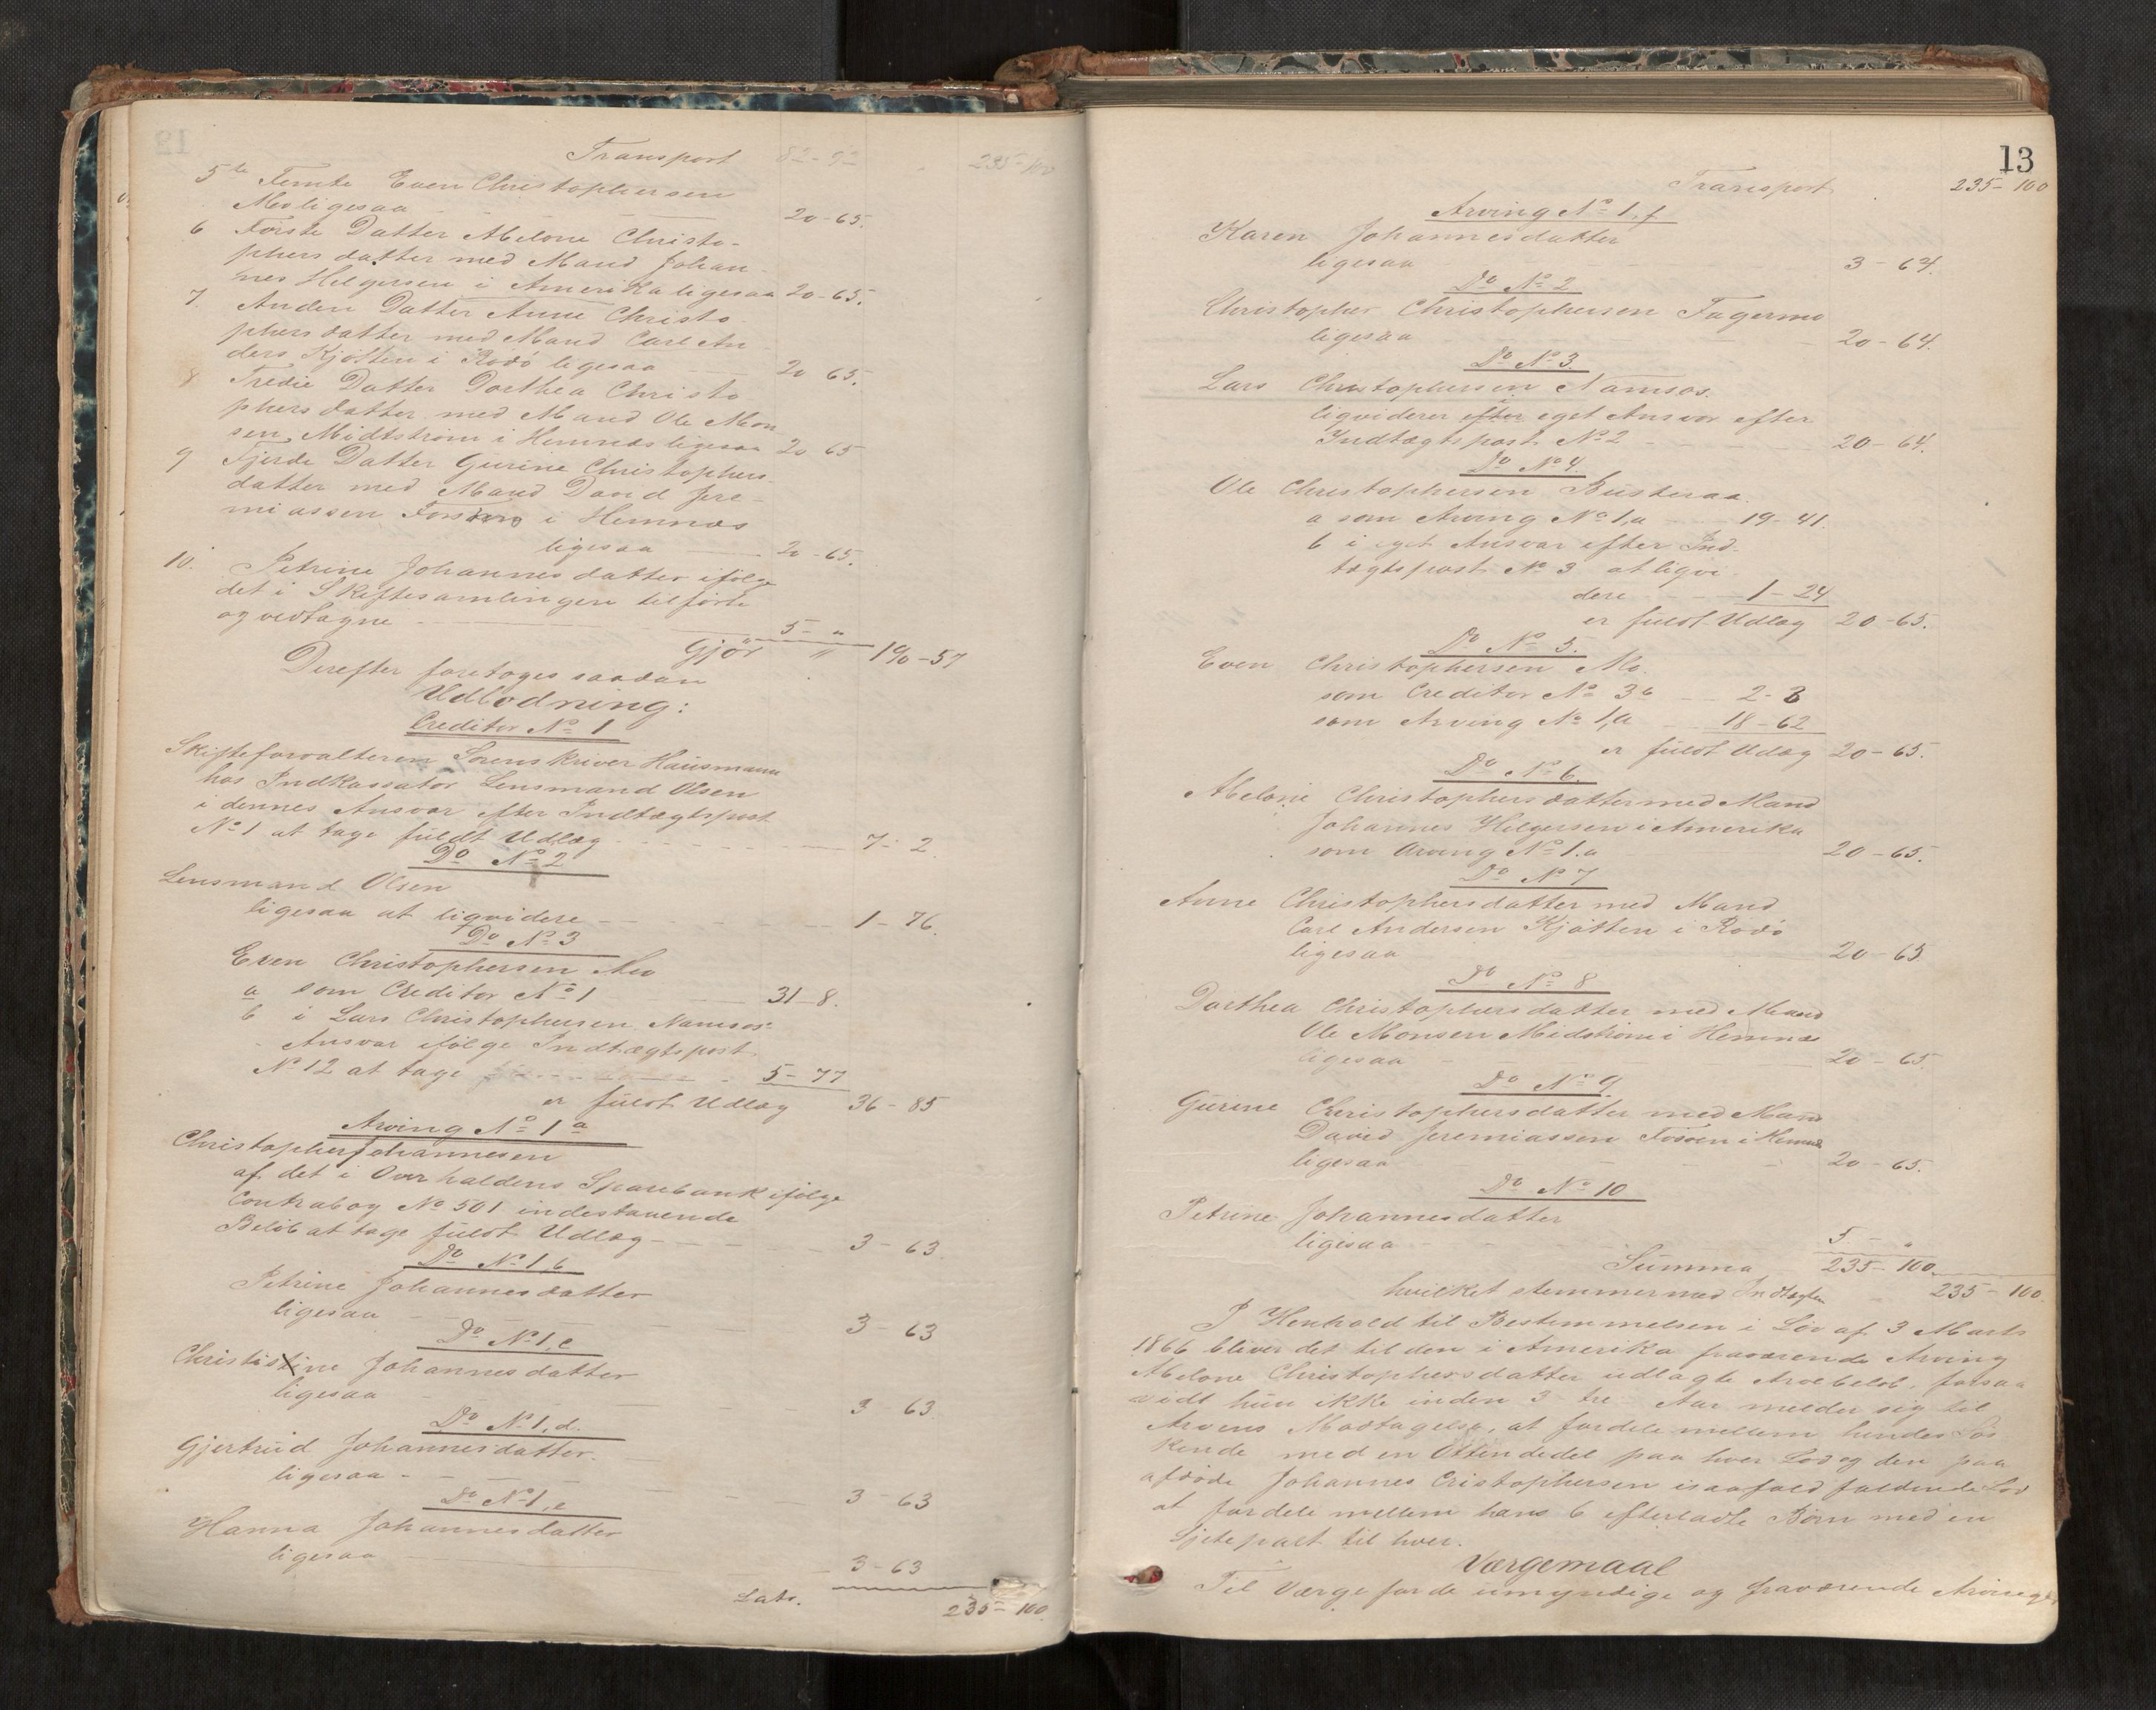 Transport 82-92 235-100
5te Femte Even Christophersen
Mo ligesaa 20-65.
6 Förste Datter Abelone Christo-
phersdatter med Mand Johan-
nes Hilgersen i Amerika ligesaa 20-65.
7. Anden Datter Anne Christo
phersdatter med Mand Carl An
ders Kjötten i Rödö ligesaa 20 65.
8 Tredie Datter Dorthea Christo
phersdatter med Mand Ole Mon
sen Midtström i Hemnæs ligesaa 20 65
9 Fjerde Datter Gurine Christophers-
datter med Mand David Jere-
miassen i Hemnæs
ligesaa 20-65.
10. Petrine Johannesdatter ifölge
det i Skiftesamlingen tilförte
og vedtagne 5 - "
Gjör " 190-57
Derefter foretoges saadan
Udlodning:
Creditor No 1
Skifteforvalteren Sorenskriver Hausmann
hos Indkassator Lensmand Olsen
i dennes Ansvar efter Indtægtspost
No 1 at tage fuldt Udlæg 7-2.
Do No 2
Lensmand Olsen
ligesaa at liqvidere 1-76.
Do No 3
Even Christophersen Mo
a som Creditor No 1 31-8.
b i Lars Christophersen Namsos'
Ansvar ifölge Indtægtspost
No 12 at tage 5-77
er fuldt Udlæg 36-85
Arving No 1 a
Christopher Johannesen
af det i Overhaldens Sparebank ifölge
Contrabog No 501 indestaaende
Belöb at tage fuldt Udlæg 3-63.
Do No 1,b
Petrine Johannesdatter
ligesaa 3-63
Do No 1,c
Christistine Johannesdatter
ligesaa 3 63.
Do No 1,d.
Gjertrud Johannesdatter.
ligesaa 3-63
Do No 1,e
Hanna Johannesdatter
ligesaa 3-63
Lats. 235-100.
13
Transport 235-100
Arving No 1,f
Karen Johannesdatter
ligesaa 3-64.
Do No 2
Christopher Christophersen Fagermo
ligesaa 20-64.
Do No 3.
Lars Christophersen Namsos.
liqviderer efter eget Ansvar efter
Indtægtspost No 2 20-64.
Do No 4.
Ole Christophersen
a som Arving No 1,a 19-41.
b i eget Ansvar efter Ind-
tægtspost No 3 at liqvi-
dere 1-24
er fuldt Udlæg 20-65.
Do No 5.
Even Christophersen Mo.
som Creditor No 3b 2-3
som Arving No 1,a 18-62
er fuldt Udlæg 20-65.
Do No 6.
Abeloni Christophersdatter med Mand
Johannes Hilgersen i Amerika
som Arving No 1.a 20-65.
Do No 7
Anne Christophersdatter med Mand
Carl Andersen Kjötten i Rödö
ligesaa 20-65.
Do No 8
Dorthea Christophersdatter med Mand
Ole Monsen Midtström i Hemnæs
ligesaa 20-65.
Do No 9.
Gurine Christophersdatter med Mand
David Jeremiassen i Hemnæs
ligesaa 20-65.
Do No 10
Petrine Johannesdatter
ligesaa 5 - "
Summa 235-100.
hvilket stemmer med Indtægten 235-100.
I Henhold til Bestemmelsen i Lov af 3 Marts
1866 bliver det til den i Amerika fraværende Arving
Abelone Christophersdatter udlagte Arvebelöb, forsaa
vidt hun ikke inden 3 tre Aar melder sig til
Arvens Modtagelse, at fordele mellem hendes Sös
kende med en Ottendedel paa hver Lod og den paa
afdöde Johannes Cristophersen isaafald faldende Lod
at fordele mellem hans 6 efterladte Börn med en
Sjetepart til hver.
Værgemaal
Til Værge for de umyndige og fraværende Arvinger